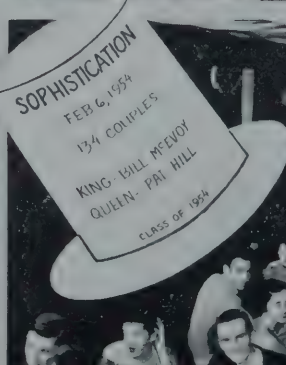 SOPHISTICATION
FEB 6, 1954
134 COUPLES
KING - BILL McEVOY
QUEEN - PAT HILL
CLASS OF 1954